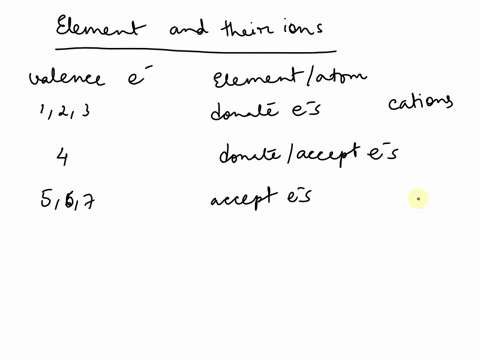 Element and their ions
valence e⁻ Element/atom
1, 2, 3 donate e⁻s cations
4 donate/accept e⁻s
5, 6, 7 accept e⁻s